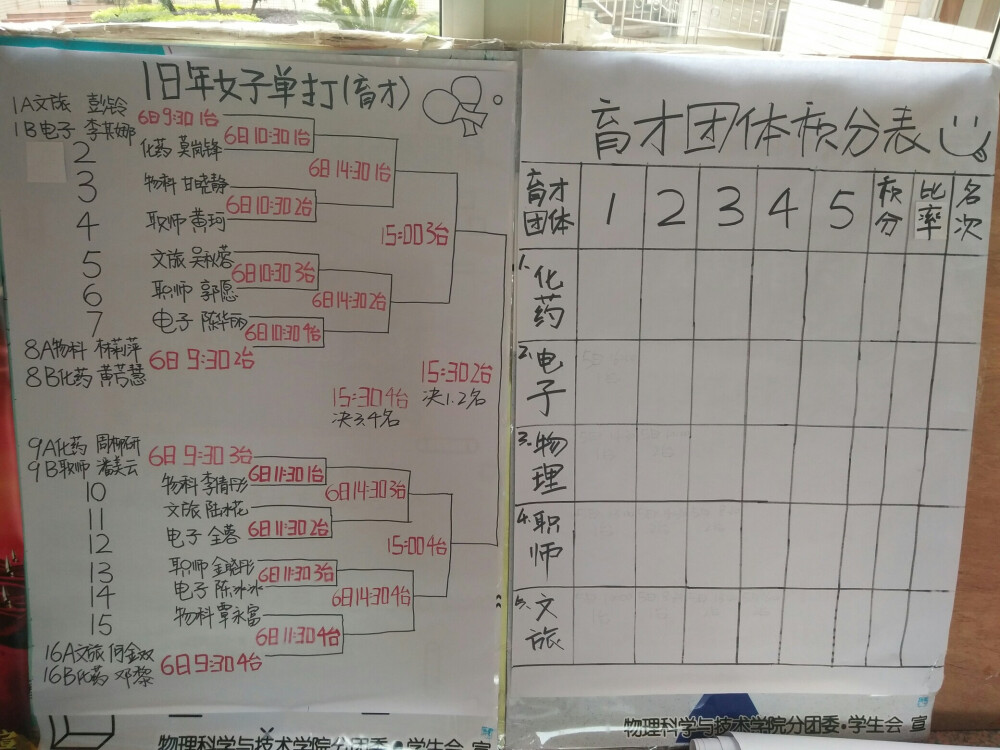 18年女子单打(育才)
1A文旅
1B电子 李其娜
6日9:30 1台
6日10:30 1台
2
化药 莫岚锋
6日14:30 1台
3
物科 甘晓静
6日10:30 2台
4
职师 黄珂
15:00 3台
5
文旅 吴秋蓉
6日10:30 3台
6
职师 郭愿
6日14:30 2台
7
电子 陈华丽
6日10:30 4台
8A物科 林莉萍
8B化药 黄芳慧
6日 9:30 2台
15:30 4台
决3.4名
15:30 2台
决1.2名
9A化药 周柳研
9B职师 潘美云
6日 9:30 3台
6日11:30 1台
10
物科 李倩彤
6日14:30 3台
11
文旅 陆冰花
6日11:30 2台
12
电子 全蓉
15:00 4台
13
职师 金晓彤
6日11:30 3台
14
电子 陈冰冰
6日14:30 4台
15
物科 覃永富
6日11:30 4台
16A文旅 何金双
16B化药 邓黎
6日9:30 4台
物理科学与技术学院分团委·学生会 宣
育才团体积分表
育才团体 1 2 3 4 5 积分 比率 名次
1.化药
2.电子
3.物理
4.职师
5.文旅
物理科学与技术学院分团委·学生会 宣